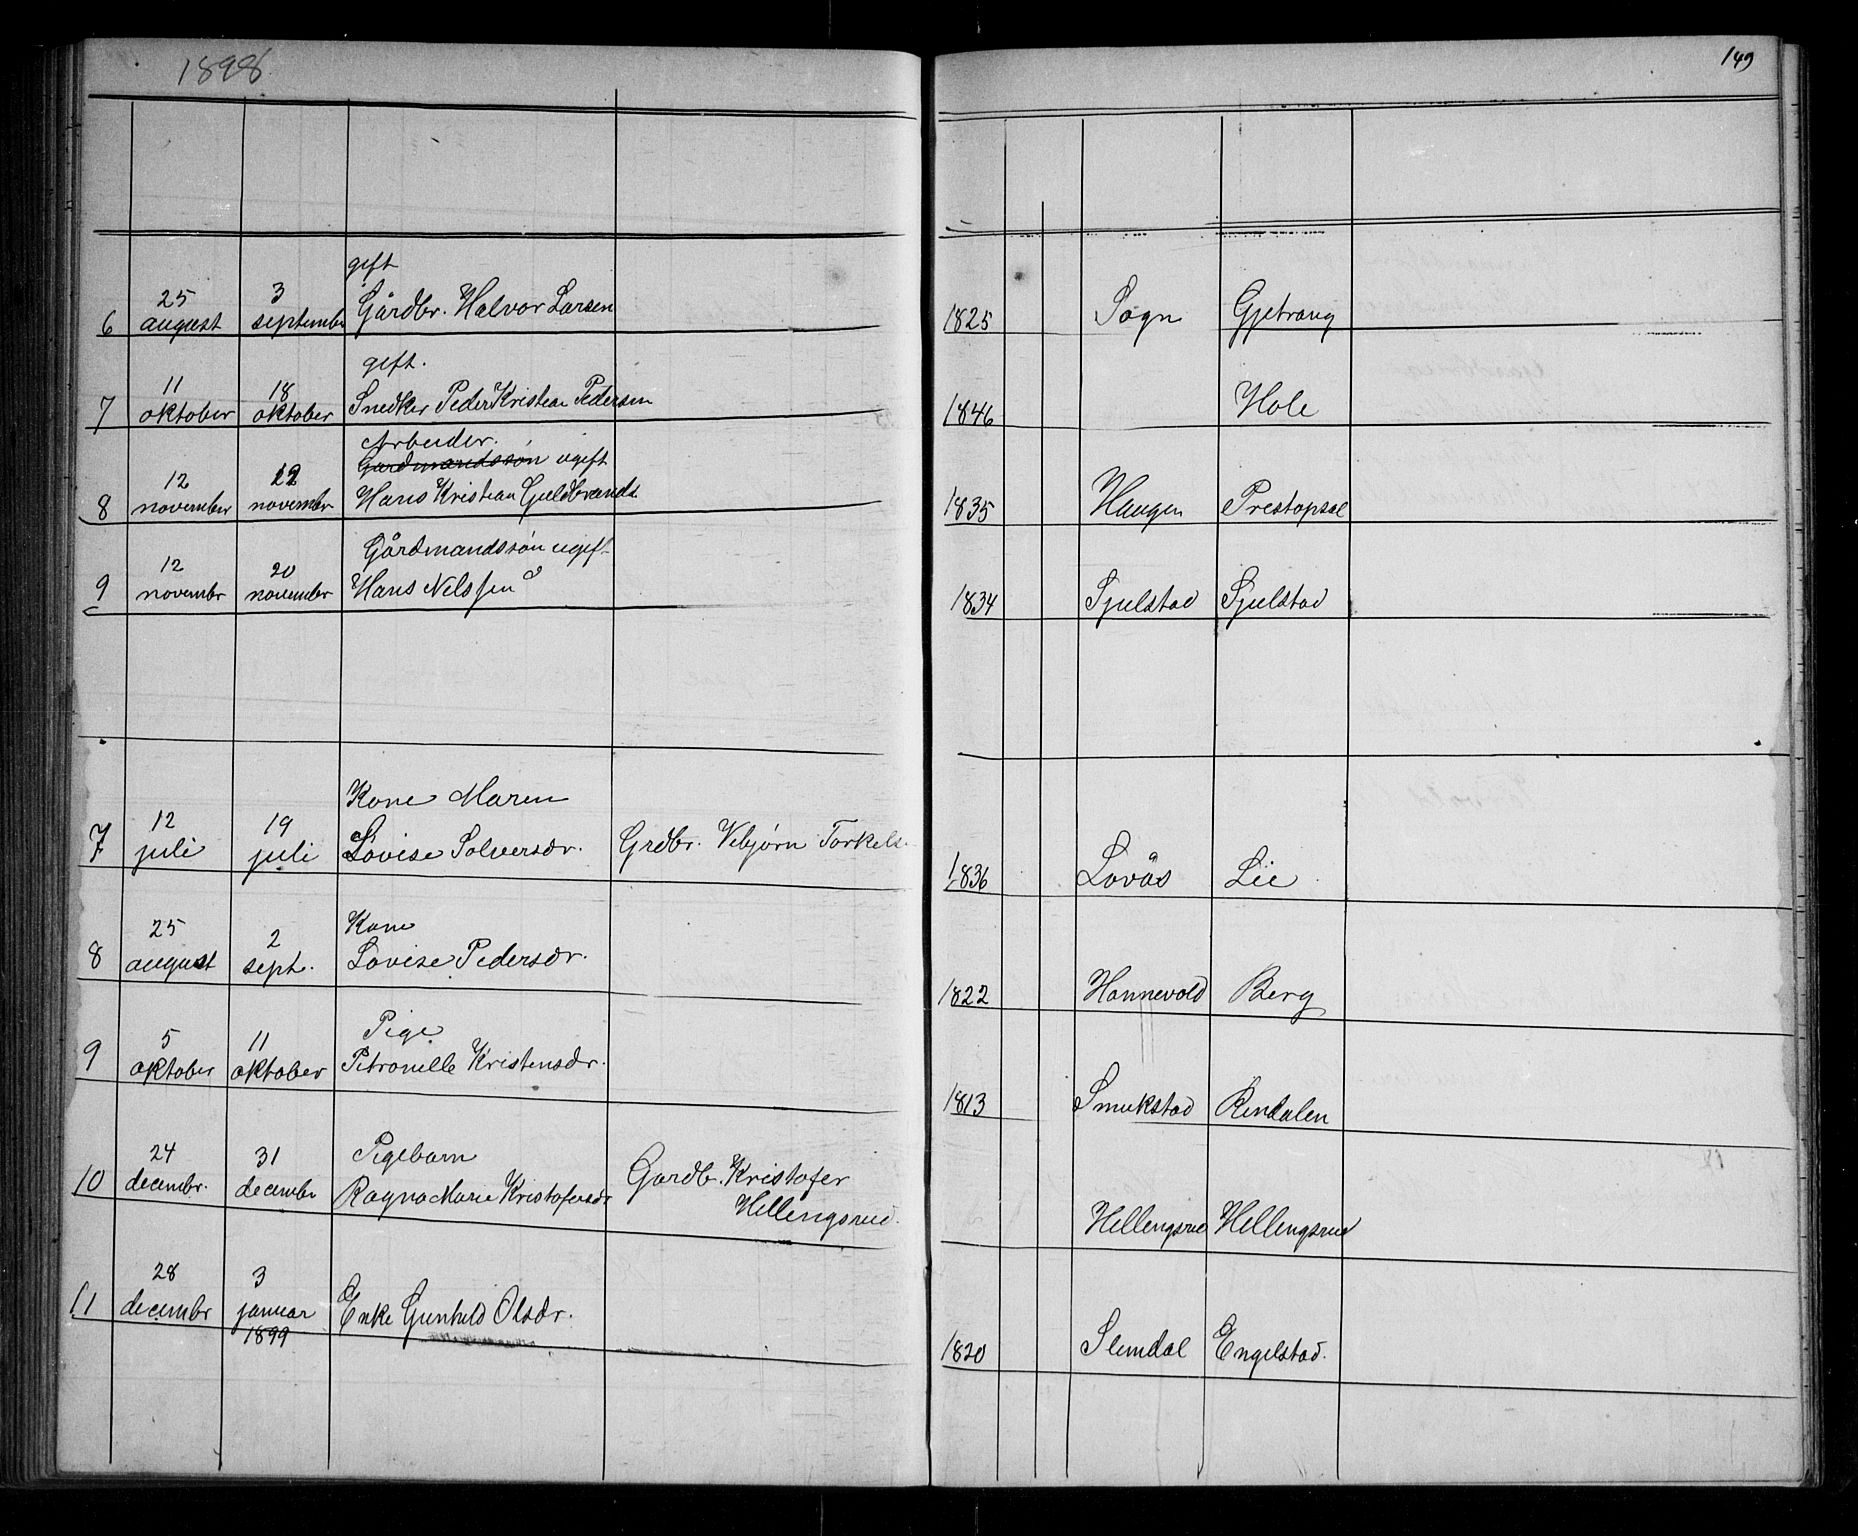 1898
149
gift
6 25 august 3 septembr Gårdbr. Halvor Larsen 1825 Sogn Gjetrang
gift.
7 11 oktober 18 oktober Snedker Peder Kristian Pedersen 1846 Hole
Arbeider.
Gardmandssøn ugift
8 12 november november Hans Kristian Guldbrands. 1835 Haugen Prestopsal
Gårdmandssøn ugift
9 12 novembr 20 novembr Hans Nelssen 1834 Sjulstad Sjulstad
Kone Maren
7 12 juli 19 juli Lovise Solversdr. Grdbr. Vebjørn Torkels. 1836 Lovås Lie
Kone
8 25 august 2 sept. Lovise Pedersdr. 1822 Hannevold Berg
Pige
9 5 oktober 11 oktober Petronelle Kristensdr. 1813 Smukstad Rindalen
Pigebarn Gardb. Kristofer
10 24 decembr. 31 decembr Ragna Marie Kristofersdr Hellengsrud. Hellengsrud Hellengsrud
11 28 decembr 3 januar 1899 Enke Gunhild Olsdr. 1820 Slemdal Engelstad.